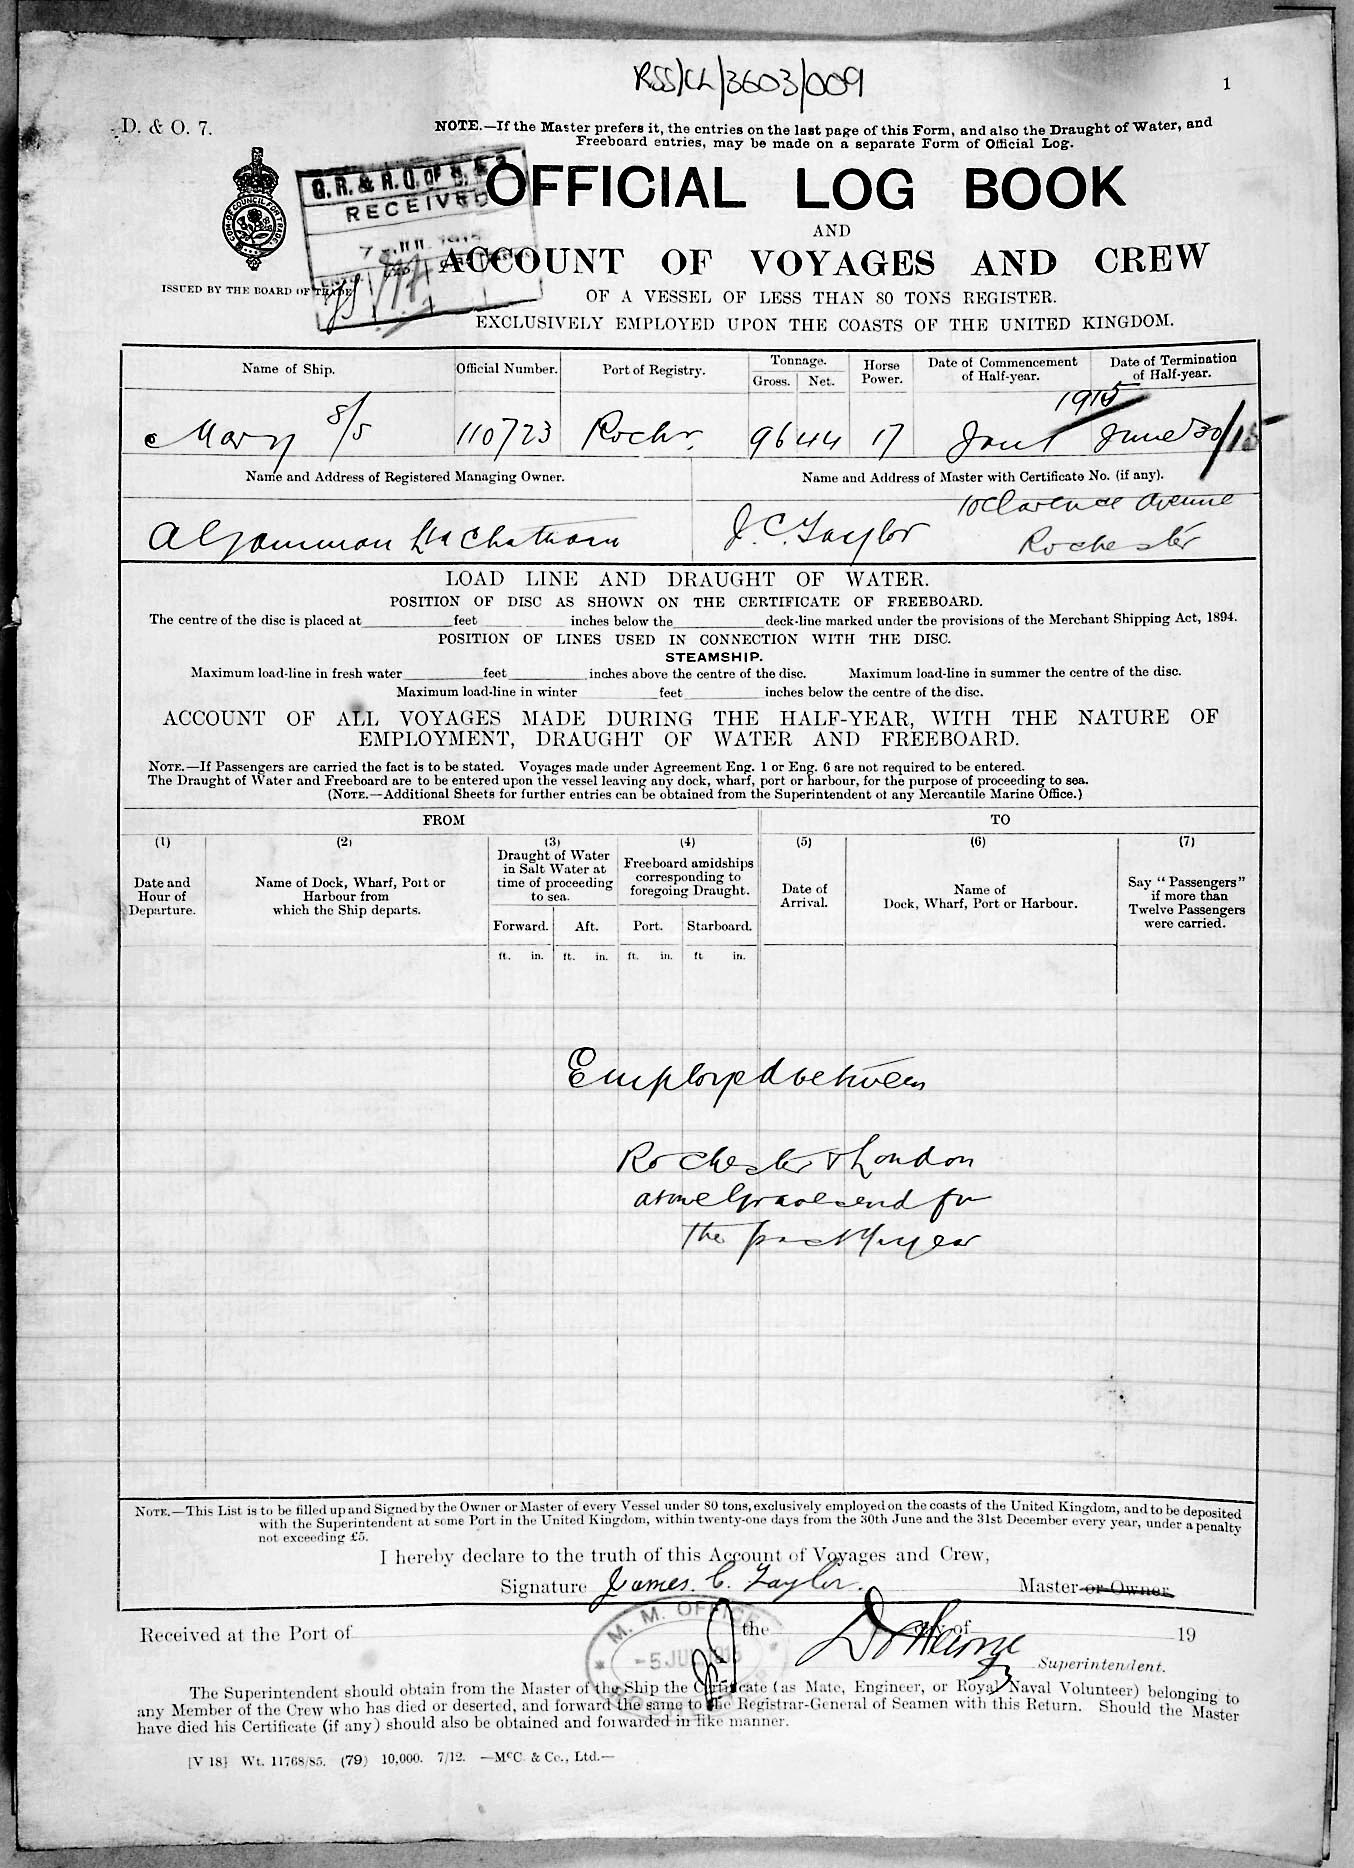 RSS/CL/3603/009
1
D. & O. 7.
NOTE.—If the Master prefers it, the entries on the last page of this Form, and also the Draught of Water, and
Freeboard entries, may be made on a separate Form of Official Log.
G.R. & R.O. OF S. & S.
RECEIVED
OFFICIAL LOG BOOK
AND
ACCOUNT OF VOYAGES AND CREW
ISSUED BY THE BOARD OF TRADE
OF A VESSEL OF LESS THAN 80 TONS REGISTER.
EXCLUSIVELY EMPLOYED UPON THE COASTS OF THE UNITED KINGDOM.
Name of Ship. Official Number. Port of Registry. Tonnage. Gross. Net. Horse Power. Date of Commencement of Half-year. Date of Termination of Half-year.
1915
Mary S/S 110723 Rochr. 96 44 17 Jan 1 June 30/15
Name and Address of Registered Managing Owner. Name and Address of Master with Certificate No. (if any).
J. C. Taylor 10 Clarence Avenue
Rochester
LOAD LINE AND DRAUGHT OF WATER.
POSITION OF DISC AS SHOWN ON THE CERTIFICATE OF FREEBOARD.
The centre of the disc is placed at feet inches below the deck-line marked under the provisions of the Merchant Shipping Act, 1894.
POSITION OF LINES USED IN CONNECTION WITH THE DISC.
STEAMSHIP.
Maximum load-line in fresh water feet inches above the centre of the disc. Maximum load-line in summer the centre of the disc.
Maximum load-line in winter feet inches below the centre of the disc.
ACCOUNT OF ALL VOYAGES MADE DURING THE HALF-YEAR, WITH THE NATURE OF
EMPLOYMENT, DRAUGHT OF WATER AND FREEBOARD.
NOTE.—If Passengers are carried the fact is to be stated. Voyages made under Agreement Eng. 1 or Eng. 6 are not required to be entered.
The Draught of Water and Freeboard are to be entered upon the vessel leaving any dock, wharf, port or harbour, for the purpose of proceeding to sea.
(NOTE.—Additional Sheets for further entries can be obtained from the Superintendent of any Mercantile Marine Office.)
FROM TO
(1) (2) (3) (4) (5) (6) (7)
Date and Hour of Departure.
Name of Dock, Wharf, Port or Harbour from which the Ship departs.
Draught of Water in Salt Water at time of proceeding to sea.
Freeboard amidships corresponding to foregoing Draught.
Date of Arrival.
Name of Dock, Wharf, Port or Harbour.
Say "Passengers" if more than Twelve Passengers were carried.
Forward. Aft. Port. Starboard.
ft. in. ft. in. ft. in. ft in.
Employed between
Rochester & London
above Gravesend for
the past ½ year
NOTE.—This List is to be filled up and Signed by the Owner or Master of every Vessel under 80 tons, exclusively employed on the coasts of the United Kingdom, and to be deposited
with the Superintendent at some Port in the United Kingdom, within twenty-one days from the 30th June and the 31st December every year, under a penalty
not exceeding £5.
I hereby declare to the truth of this Account of Voyages and Crew,
Signature James. C. Taylor. Master or Owner.
M. M. OFFICE
-5 JUL 1915
Received at the Port of the day of 19
Superintendent.
The Superintendent should obtain from the Master of the Ship the Certificate (as Mate, Engineer, or Royal Naval Volunteer) belonging to
any Member of the Crew who has died or deserted, and forward the same to the Registrar-General of Seamen with this Return. Should the Master
have died his Certificate (if any) should also be obtained and forwarded in like manner.
[V 18] Wt. 11768/85. (79) 10,000. 7/12. —McC. & Co., Ltd.—